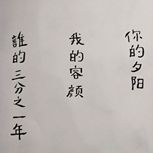 你的夕阳
我的容颜
誰的三分之一年